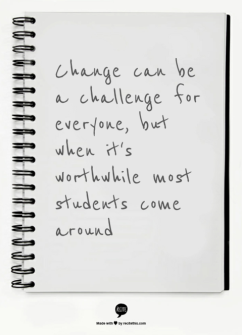 Change can be
a challenge for
everyone, but
when it's
worthwhile most
students come
around
RECITE
Made with ♥ by recitethis.com